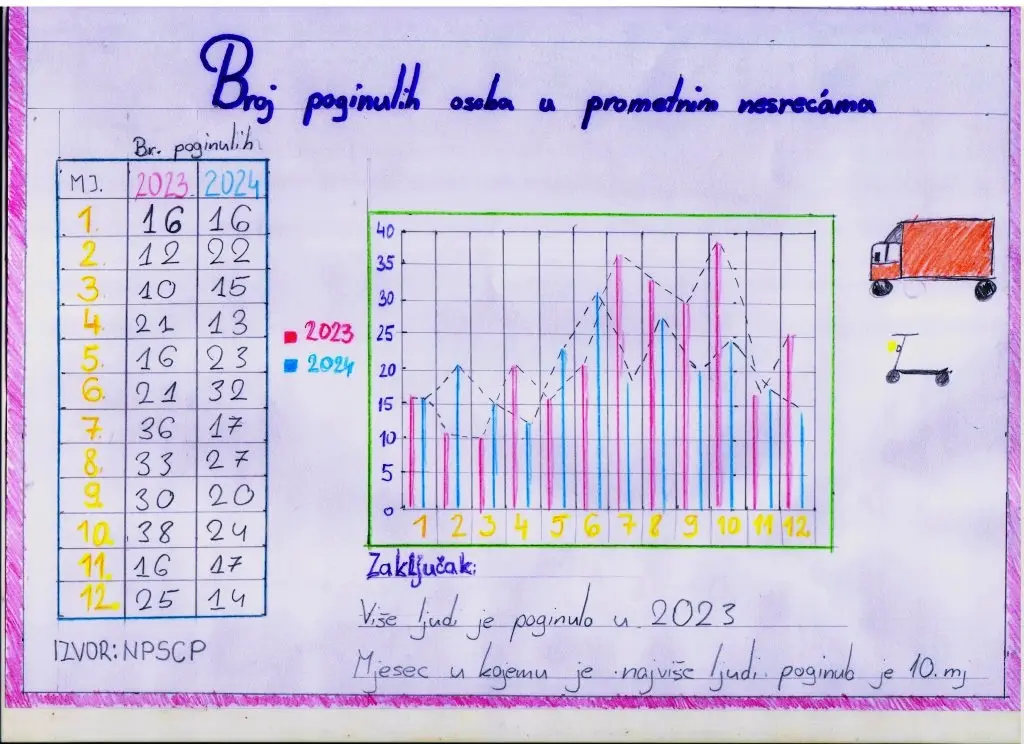 Broj poginulih osoba u prometnim nesrećama
Br. poginulih
MJ. 2023. 2024
1. 16 16
2 12 22
3 10 15
4. 21 13
5. 16 23
6. 21 32
7. 36 17
8. 33 27
9. 30 20
10. 38 24
11. 16 17
12. 25 14
IZVOR: NPSCP
2023
2024
40
35
30
25
20
15
10
5
0
1 2 3 4 5 6 7 8 9 10 11 12
Zaključak:
Više ljudi je poginulo u 2023
Mjesec u kojemu je najviše ljudi poginulo je 10. mj